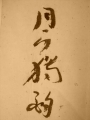 月下獨酌